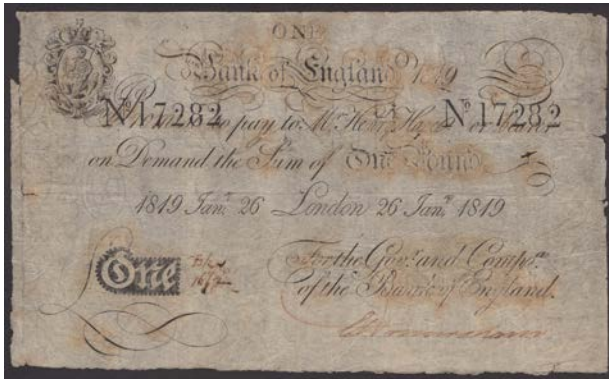 ONE
Bank of England 1819
No 17282 No 17282
to pay to Mr. Henry Hase or Bearer
on Demand the Sum of One Pound
1819 Jany. 26 London 26 Jany. 1819
For the Govr. and Compa.
of the Bank of England.
One